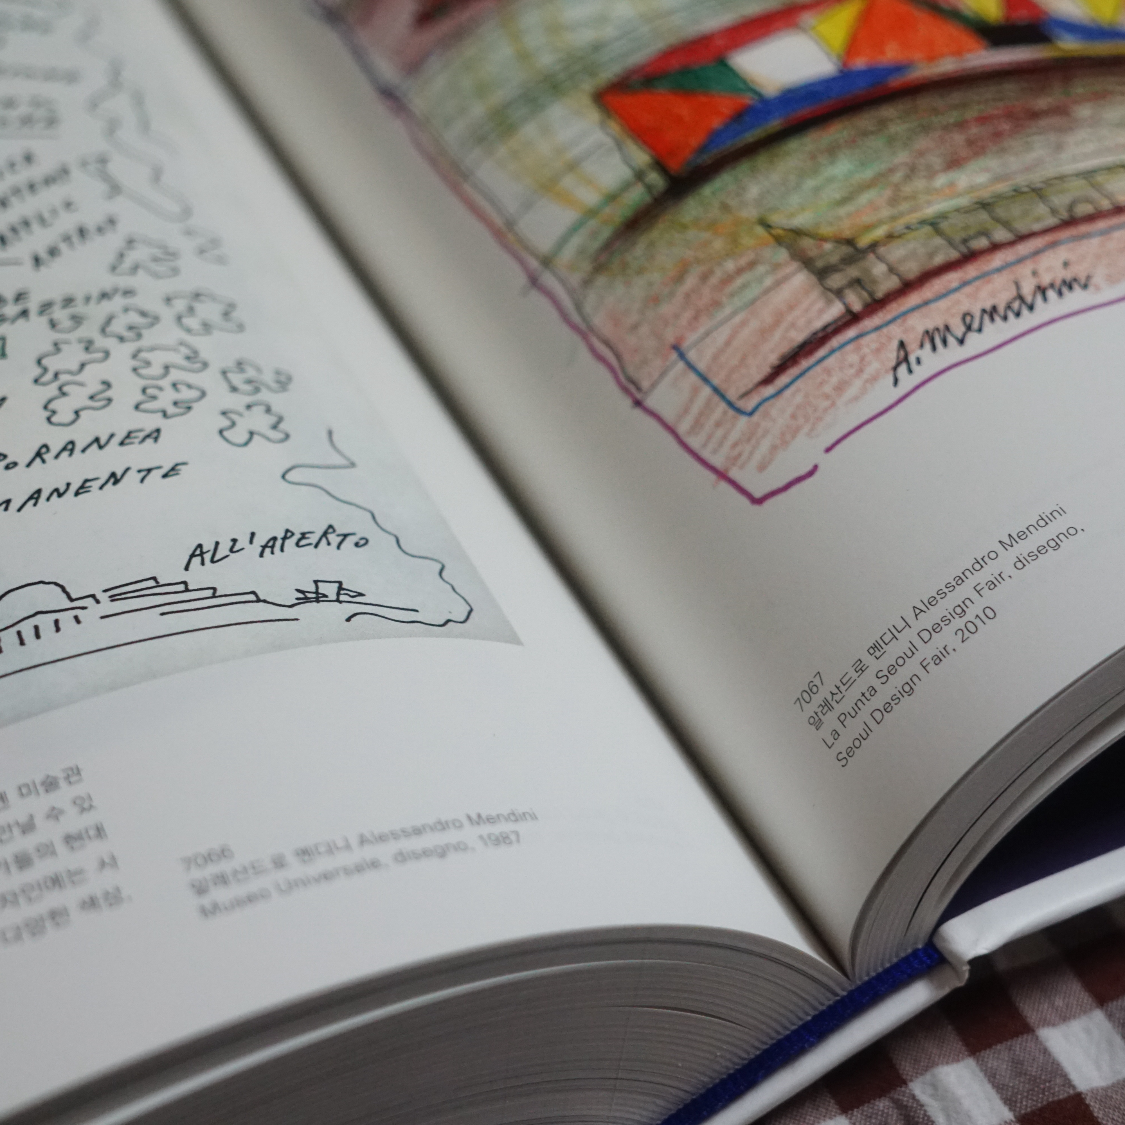 ANTROP
AZZINO
ORANEA
MANENTE
ALL'APERTO
미술관
만날 수 있
들의 현대
자인에는 서
다양한 색상,
7066
알레산드로 멘디니 Alessandro Mendini
Museo Universele, disegno, 1987
A. mendini
7067
알레산드로 멘디니 Alessandro Mendini
La Punta Seoul Design Fair, disegno,
Seoul Design Fair, 2010